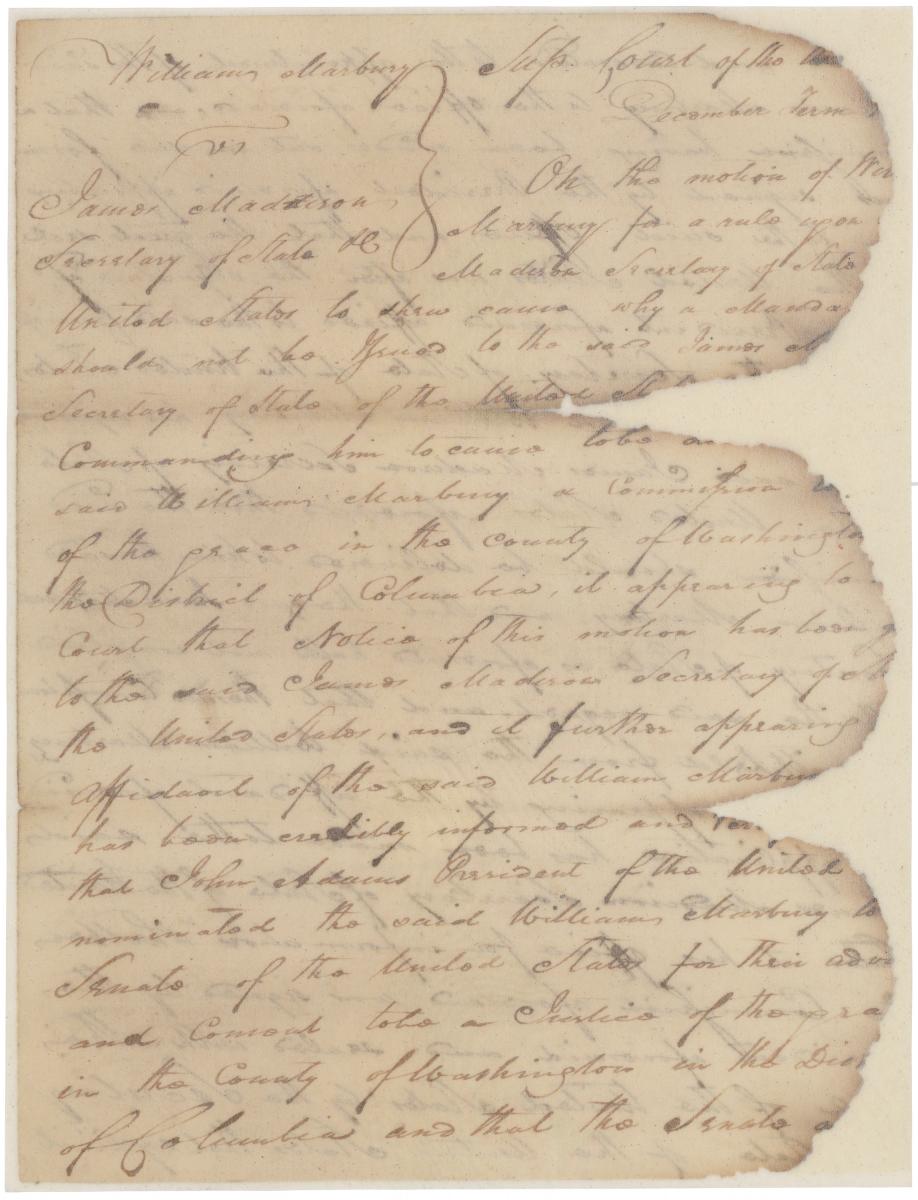 William Marbury Sup. Court of the
December Term
vs
On the motion of
James Madison, Marbury for a rule upon
Secretary of State &c Madison Secretary of State
United States to shew cause why a Manda
should not be Issued to the said James
Secretary of State of the United
Commanding him to cause to be
said William Marbury a Commission
of the peace in the county of Washington
the District of Columbia, it appearing to
Court that Notice of this motion has been
to the said James Madison Secretary of
the United States, and it further appearing
affidavit of the said William Marbu
has been credibly informed and
that John Adams President of the United
nominated the said William Marbury to
Senate of the United States for their advi
and Consent to be a Justice of the pea
in the County of Washington in the Dis
of Columbia and that the Senate